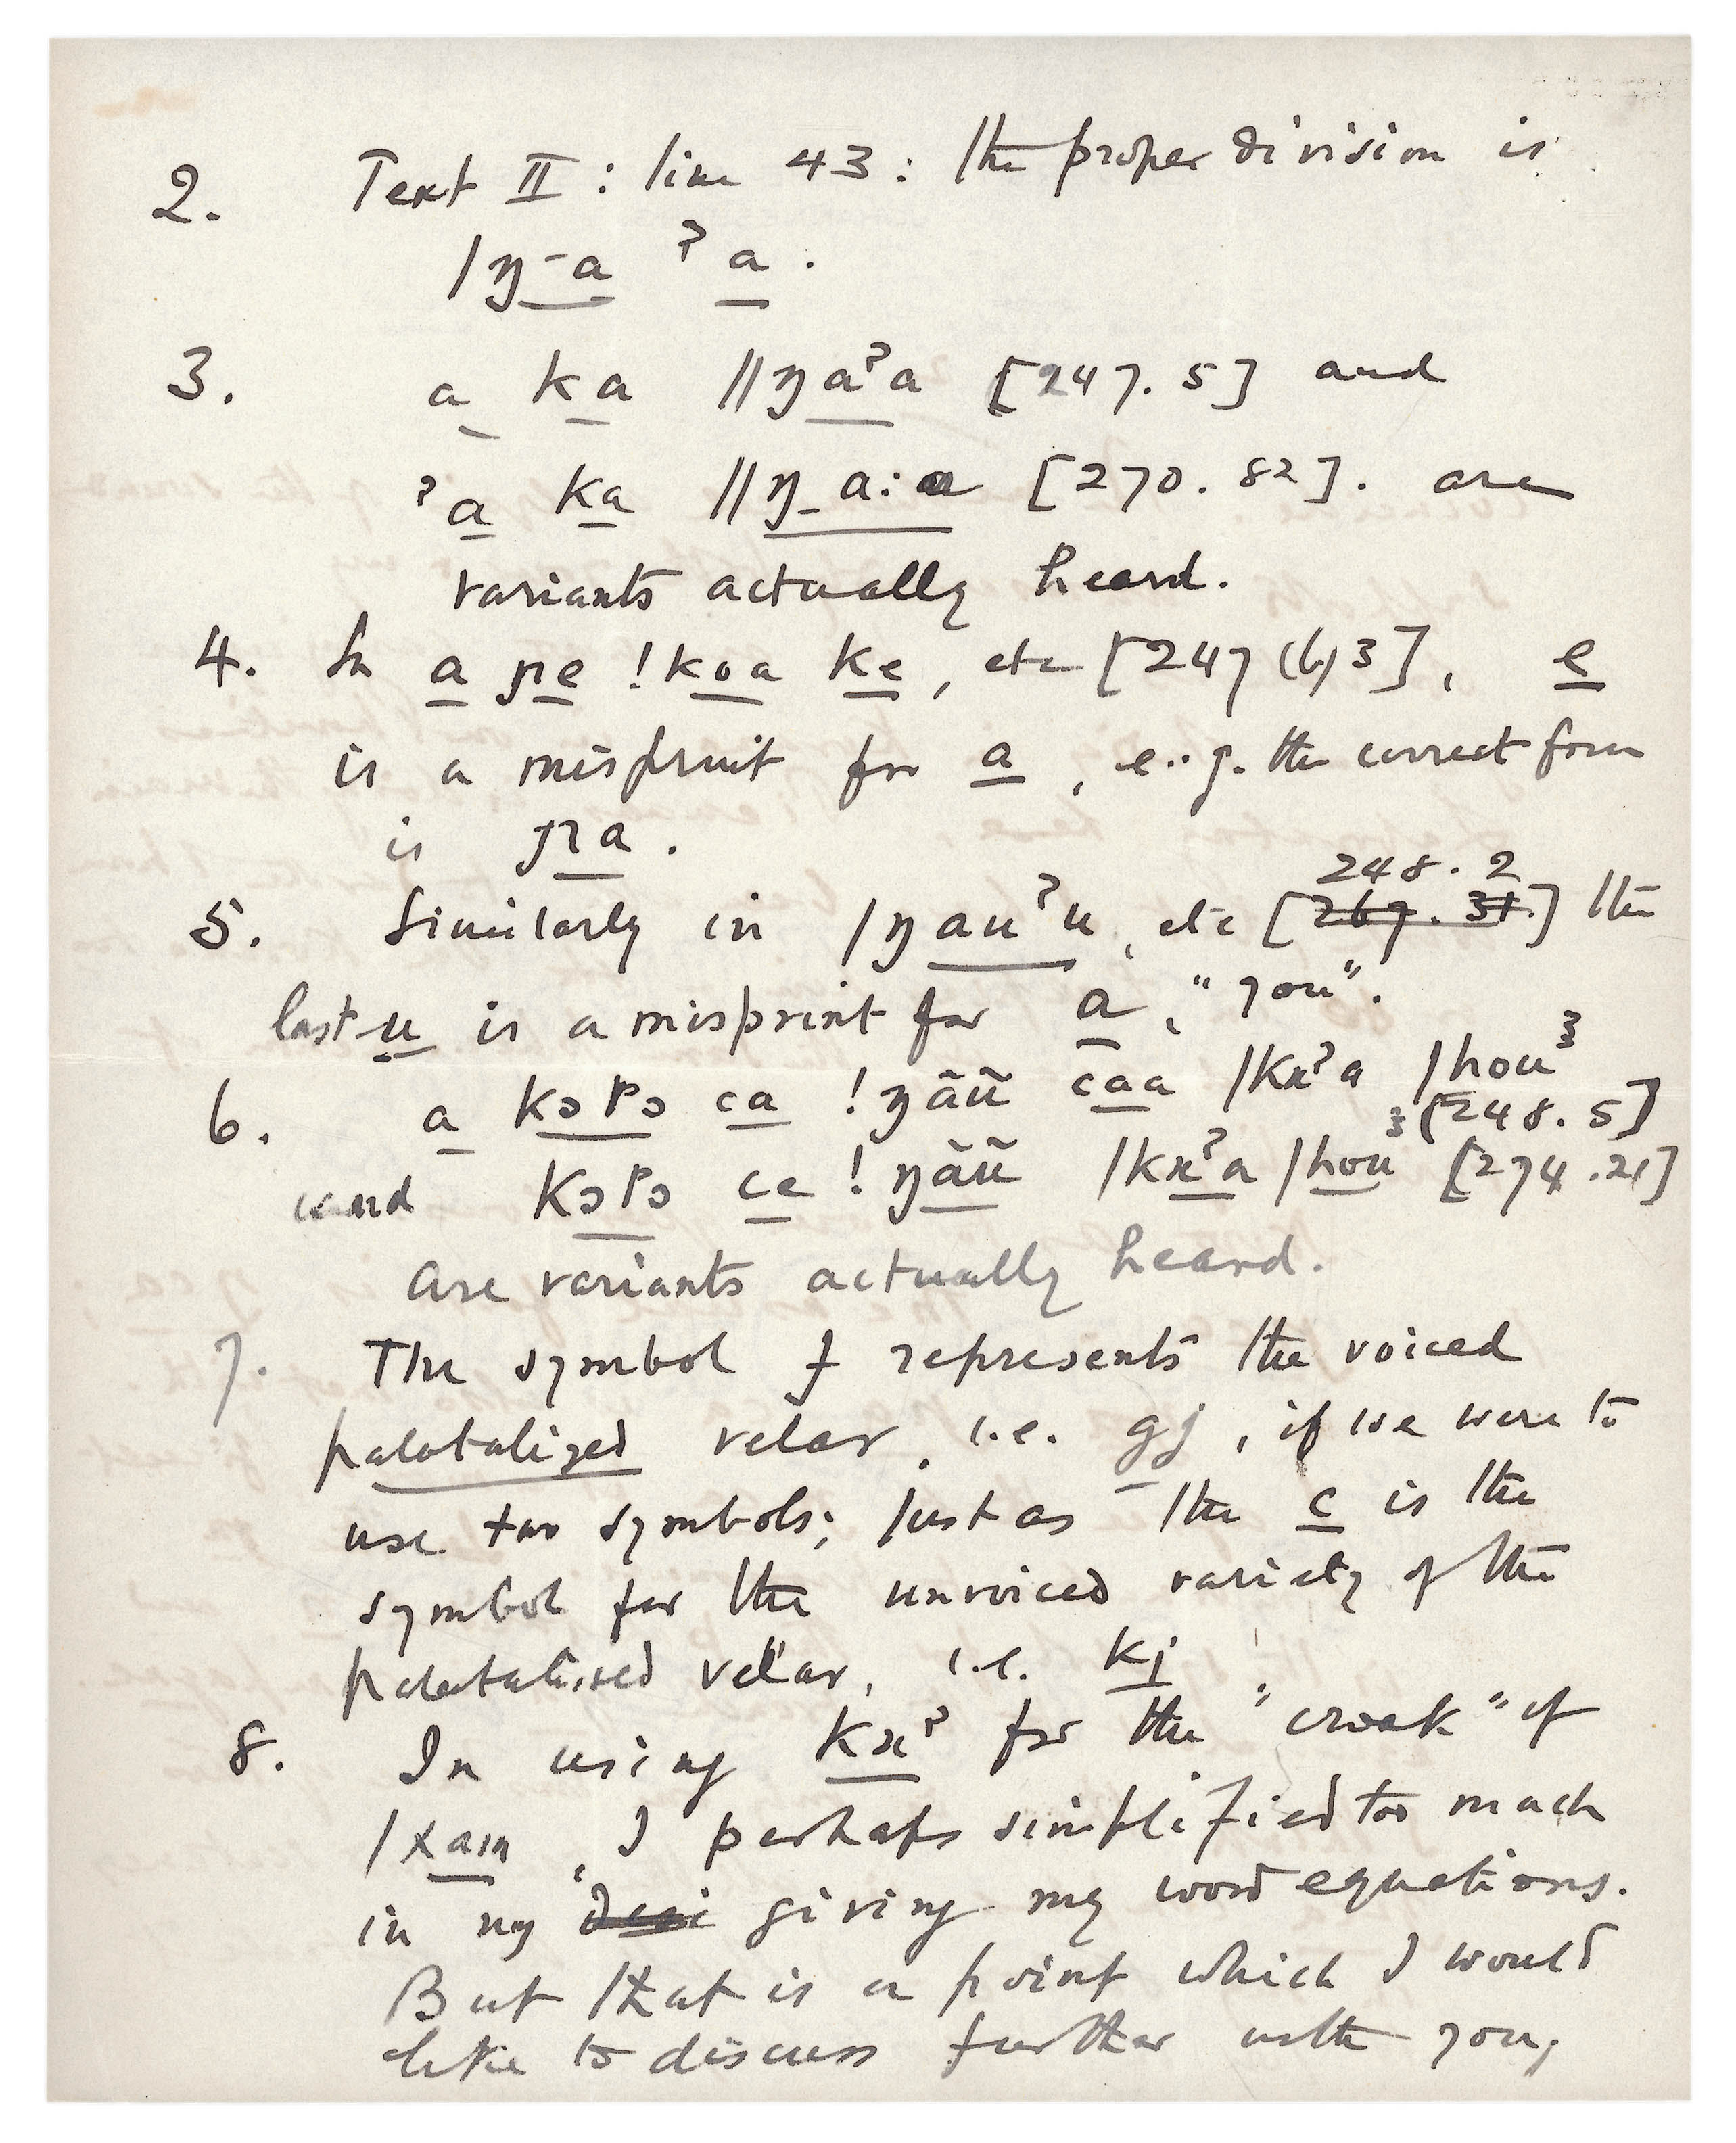 2. Text II : line 43 : the proper division is
/ŋ-a ʔa .
3. a ka //ŋaʔa [247. 5] and
ʔa ka //ŋ_a:a [270. 82]. are
variants actually heard.
4. In a ɲe !koa ke, etc [247 (b) 3], e
is a misprint for a, e.g. the correct form
is ɲa.
248. 2
5. Similarly in /ŋauʔu, etc [267. 31.] the
last u is a misprint for a, "you".
6. a kɔrɔ ca !ŋãũ caa /kxʔa /hou ʒ
ʒ [248. 5]
and kɔrɔ ce !ŋãũ /kxʔa /hou [274 .21]
are variants actually heard.
7. The symbol ɟ represents the voiced
palatalized velar, i.e. gj, if we were to
use two symbols; just as the c is the
symbol for the unvoiced variety of the
palatalised velar, i.e. kj
8. In using kxʔ for the "croak" of
/xam, I perhaps simplified too much
in my giving my word equations.
But that is a point which I would
like to discuss further with you,